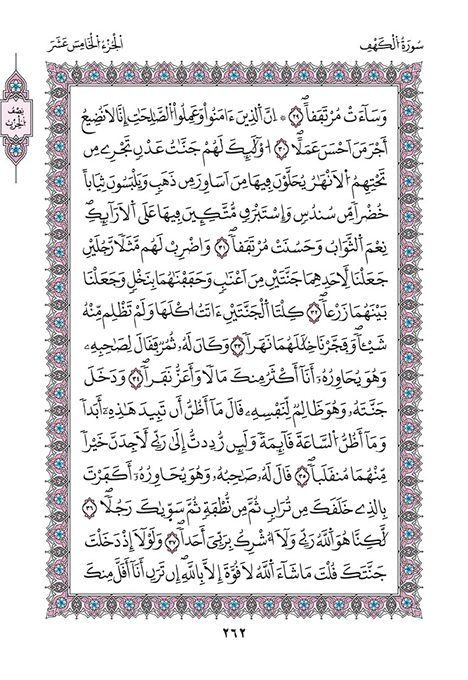 سُورَةُ الْكَهْفِ
الْجُزْءُ الْخَامِسَ عَشَرَ
نِصْف
الْحِزْب
وَسَآءَتْ مُرْتَفَقاً ٢٩ * اِنَّ الذِينَ ءَامَنُواْ وَعَمِلُواْ الصَّٰلِحَٰتِ إِنَّا لَا نُضِيعُ
أَجْرَ مَنَ اَحْسَنَ عَمَلًا ٣٠ ا۟وْلَٰٓئِكَ لَهُمْ جَنَّٰتُ عَدْنٖ تَجْرِے مِن
تَحْتِهِمُ الَانْهَٰرُ يُحَلَّوْنَ فِيهَا مِنَ اَسَاوِرَ مِن ذَهَبٖ وَيَلْبَسُونَ ثِيَاباً
خُضْراً مِّن سُندُسٖ وَإِسْتَبْرَقٖ مُّتَّكِـِٕينَ فِيهَا عَلَي الَارَآئِكِ
نِعْمَ الثَّوَابُ وَحَسُنَتْ مُرْتَفَقاً ٣١ وَاضْرِبْ لَهُم مَّثَلًا رَّجُلَيْنِ
جَعَلْنَا لِأَحَدِهِمَا جَنَّتَيْنِ مِنَ اَعْنَٰبٖ وَحَفَفْنَٰهُمَا بِنَخْلٖ وَجَعَلْنَا
بَيْنَهُمَا زَرْعاً ٣٢ كِلْتَا الْجَنَّتَيْنِ ءَاتَتُ ا۟كْلَهَا وَلَمْ تَظْلِم مِّنْهُ
شَيْـٔاً وَفَجَّرْنَا خِلَٰلَهُمَا نَهَراً ٣٣ وَكَانَ لَهُۥ ثُمُرٌ فَقَالَ لِصَٰحِبِهِۦ
وَهُوَ يُحَاوِرُهُۥٓ أَنَآ أَكْثَرُ مِنكَ مَالًا وَأَعَزُّ نَفَراً ٣٤ وَدَخَلَ
جَنَّتَهُۥ وَهُوَ ظَالِمٌ لِّنَفْسِهِۦ قَالَ مَآ أَظُنُّ أَن تَبِيدَ هَٰذِهِۦٓ أَبَداً
وَمَآ أَظُنُّ السَّاعَةَ قَآئِمَةً وَلَئِن رُّدِدتُّ إِلَىٰ رَبِّي لَأَجِدَنَّ خَيْراً
مِّنْهُمَا مُنقَلَباً ٣٥ قَالَ لَهُۥ صَاحِبُهُۥ وَهُوَ يُحَاوِرُهُۥٓ أَكَفَرْتَ
بِالذِے خَلَقَكَ مِن تُرَابٖ ثُمَّ مِن نُّطْفَةٖ ثُمَّ سَوّٰيٰكَ رَجُلًا ٣٦
لَّٰكِنَّا هُوَ اَللَّهُ رَبِّي وَلَآ أُشْرِكُ بِرَبِّيَ أَحَداً ٣٧ وَلَوْلَآ إِذْ دَخَلْتَ
جَنَّتَكَ قُلْتَ مَا شَآءَ اَللَّهُ لَا قُوَّةَ إِلَّا بِاللَّهِ إِن تَرَنِ أَنَآ أَقَلَّ مِنكَ
٢٦٢